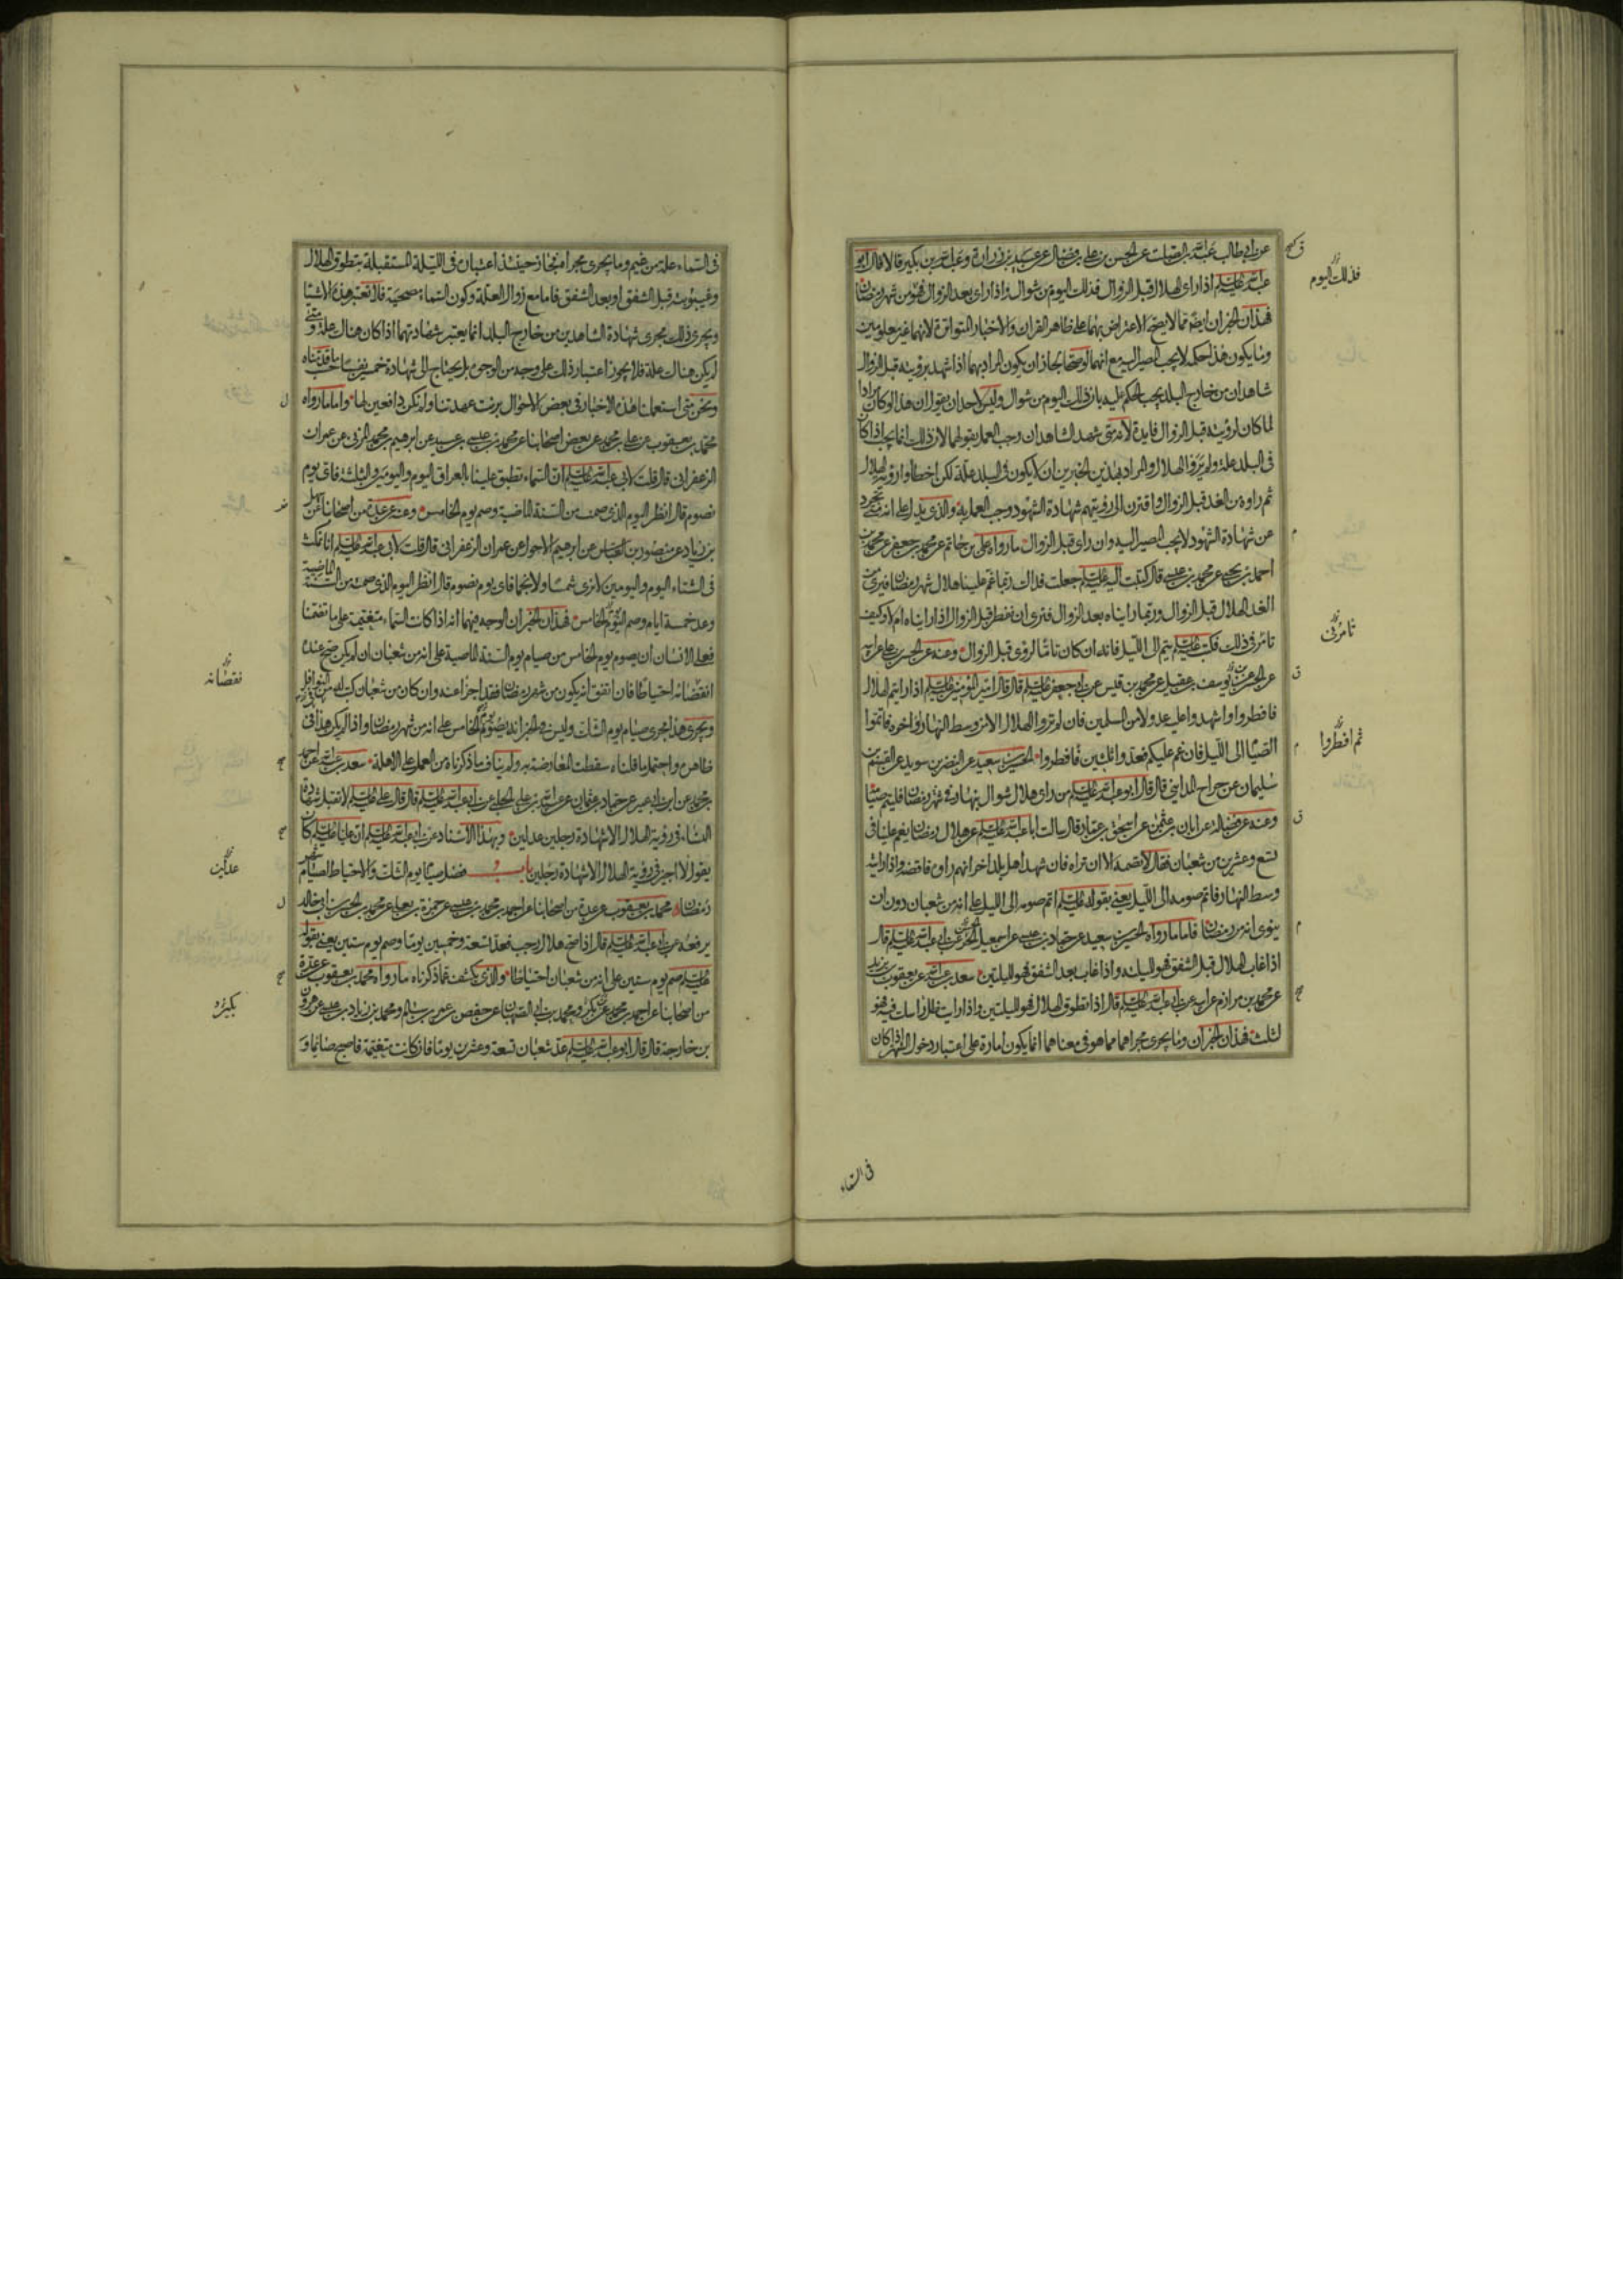 عن ابي طالب عبد الله بن الصلت عن الحسن بن علي بن فضال عن عبيد بن زرارة وعبد الله بن بكير قالا قال ابو
عبد الله عليه السلام اذا راى الهلال قبل الزوال فذلك اليوم من شوال واذا راى بعد الزوال فهو من شهر رمضان
فهذان الخبران ايضا مما لا يصح الاعتراض بهما على ظاهر القران والاخبار المتواترة لانهما غير معلومين
وما يكون هذا حكمه لا يجب المصير اليه مع انهما لو صحا لجاز ان يكون المراد بهما اذا شهد برؤيته قبل الزوال
شاهدان من خارج البلد يجب الحكم عليه بان ذلك اليوم من شوال وليس لاحد ان يقول ان هذا لو كان مرادا
لما كان لرؤيته قبل الزوال فايدة لانه متى شهد الشاهدان وجب العمل بقولهما لان ذلك انما يجب اذا كان
في البلد علة ولم يروا الهلال والمراد بهذين الخبرين ان لا يكون في البلد علة لكن اخطأوا رؤية الهلال
ثم راوه من الغد قبل الزوال واقترن الى رؤيتهم شهادة الشهود وجب العمل به والذي يدل على انه متى تجرد
عن شهادة الشهود لا يجب المصير اليه وان راى قبل الزوال ما رواه علي بن حاتم عن محمد بن جعفر عن محمد بن
احمد بن يحيى عن محمد بن عيسى قال كتبت اليه عليه السلام جعلت فداك ربما غم علينا هلال شهر رمضان فيرى من
الغد الهلال قبل الزوال وربما رايناه بعد الزوال فترى ان نفطر قبل الزوال اذا رايناه ام لا وكيف
تامر في ذلك فكتب عليه السلام يتم الى الليل فانه ان كان تاما لرؤي قبل الزوال وعنه عن الحسن بن علي عن ابيه
عن الحسن عن يوسف بن عقيل عن محمد بن قيس عن ابي جعفر عليه السلام قال قال امير المؤمنين عليه السلام اذا رايتم الهلال
فافطروا او اشهد واعليه عدولا من المسلمين فان لم تروا الهلال الا من وسط النهار او اخره فاتموا
الصيام الى الليل فان غم عليكم فعدوا ثلثين فافطروا الحسين بن سعيد عن النضر بن سويد عن القسم بن
سليمان عن جراح المدايني قال قال ابو عبد الله عليه السلام من راى هلال شوال بنهار في شهر رمضان فليتم صيامه
وعنه عن فضالة عن ابان بن عثمن عن اسحق بن عمار قال سالت ابا عبد الله عليه السلام عن هلال رمضان يغم علينا في
تسع وعشرين من شعبان فقال لا تصمه الا ان تراه فان شهد اهل بلد اخر انهم راوه فاقضه واذا رايته
وسط النهار فاتم صومه الى الليل يعني بقوله عليه السلام اتم صومه الى الليل على انه من شعبان دون ان
ينوي انه من رمضان فاما ما رواه الحسين بن سعيد عن حماد بن عيسى عن اسمعيل بن الحر عن ابي عبد الله عليه السلام قال
اذا غاب الهلال قبل الشفق فهو لليلته واذا غاب بعد الشفق فهو لليلتين سعد بن عبد الله عن يعقوب بن يزيد
عن محمد بن مرازم عن ابيه عن ابي عبد الله عليه السلام قال اذا تطوق الهلال فهو لليلتين واذا رايت ظل راسك فيه فهو
لثلث فهذان الخبران وما يجري مجراهما مما هو في معناهما انما يكون امارة على اعتبار دخول الشهر اذا كان
في السماء
فذلك اليوم
تامر في
ثم افطروا
في السماء علة من غيم وما يجري مجراه فجاز حينئذ اعتباره في الليلة المستقبلة بتطوق الهلال
وغيبوبته قبل الشفق او بعد الشفق فاما مع زوال العلة وكون السماء مصحية فلا تعتبر هذه الاشيا
ويجري ذلك مجرى شهادة الشاهدين من خارج البلد انما يعتبر شهادتهما اذا كان هناك علة ومتى
لم يكن هناك علة فلا يجوز اعتبار ذلك على وجه من الوجوه بل يحتاج الى شهادة خمسين نفسا حسب ما قدمناه
ونحن متى استعملنا هذه الاخبار في بعض الاحوال برئت عهدتنا ولم نكن دافعين لها واما ما رواه
محمد بن يعقوب عن علي بن محمد عن بعض اصحابنا عن محمد بن عيسى بن عبيد عن ابرهيم بن محمد المزني عن عمران
الزعفراني قال قلت لابي عبد الله عليه السلام ان السماء تطبق علينا بالعراق اليوم واليومين والثلثة فاي يوم
نصوم قال انظر اليوم الذي صمت من السنة الماضية وصم يوم الخامس وعنه عن عدة من اصحابنا عن سهل
بن زياد عن منصور بن العباس عن ابرهيم الاحول عن عمران الزعفراني قال قلت لابي عبد الله عليه السلام انا نمكث
في الشتاء اليوم واليومين لا نرى شمسا ولا نجما فاي يوم نصوم قال انظر اليوم الذي صمت من السنة الماضية
وعد خمسة ايام وصم اليوم الخامس فهذان الخبران الوجه فيهما انه اذا كانت السماء متغيمة على ما تضمنا
فعلى الانسان ان يصوم يوم الخامس من صيام يوم السنة الماضية على انه من شعبان ان لم يكن صح عنده
انقضائه احتياطا فان اتفق انه يكون من شهر رمضان فقد اجزا عنه وان كان من شعبان كتب له من النوافل
ويجري هذا مجرى صيام يوم الشك وليس في الخبر انه يصوم يوم الخامس على انه من شهر رمضان واذا لم يكن هذا في
ظاهره واحتمل ما قلناه سقطت المعارضة به ولم يناف ما ذكرناه من العمل على الاهلة سعد بن عبد الله عن احمد
بن محمد عن ابن ابي عمير عن حماد بن عثمان عن عبيد الله بن علي الحلبي عن ابي عبد الله عليه السلام قال قال علي عليه السلام لا تقبل شهادة
النساء في رؤية الهلال الا شهادة رجلين عدلين وبهذا الاسناد عن ابي عبد الله عليه السلام ان عليا عليه السلام كان
يقول لا اجيز في رؤية الهلال الا شهادة رجلين باب فضل صيام يوم الشك والاحتياط لصيام شهر
رمضان محمد بن يعقوب عن عدة من اصحابنا عن احمد بن محمد بن عيسى عن حمزة بن يعلى عن محمد بن الحسن بن ابي خالد
يرفعه عن ابي عبد الله عليه السلام قال اذا صح هلال رجب فعد تسعة وخمسين يوما وصم يوم ستين يعني بقوله
عليه السلام صم يوم ستين على انه من شعبان احتياطا والذي يكشف عما ذكرناه ما رواه محمد بن يعقوب عن عدة
من اصحابنا عن احمد بن محمد عن بكر ومحمد بن ابي الصهبان عن حفص عن عمر بن سالم ومحمد بن زياد بن عيسى عن هرون
بن خارجة قال قال ابو عبد الله عليه السلام عد شعبان تسعة وعشرين يوما فان كانت متغيمة فاصبح صائما و
نقصانه
عدلين